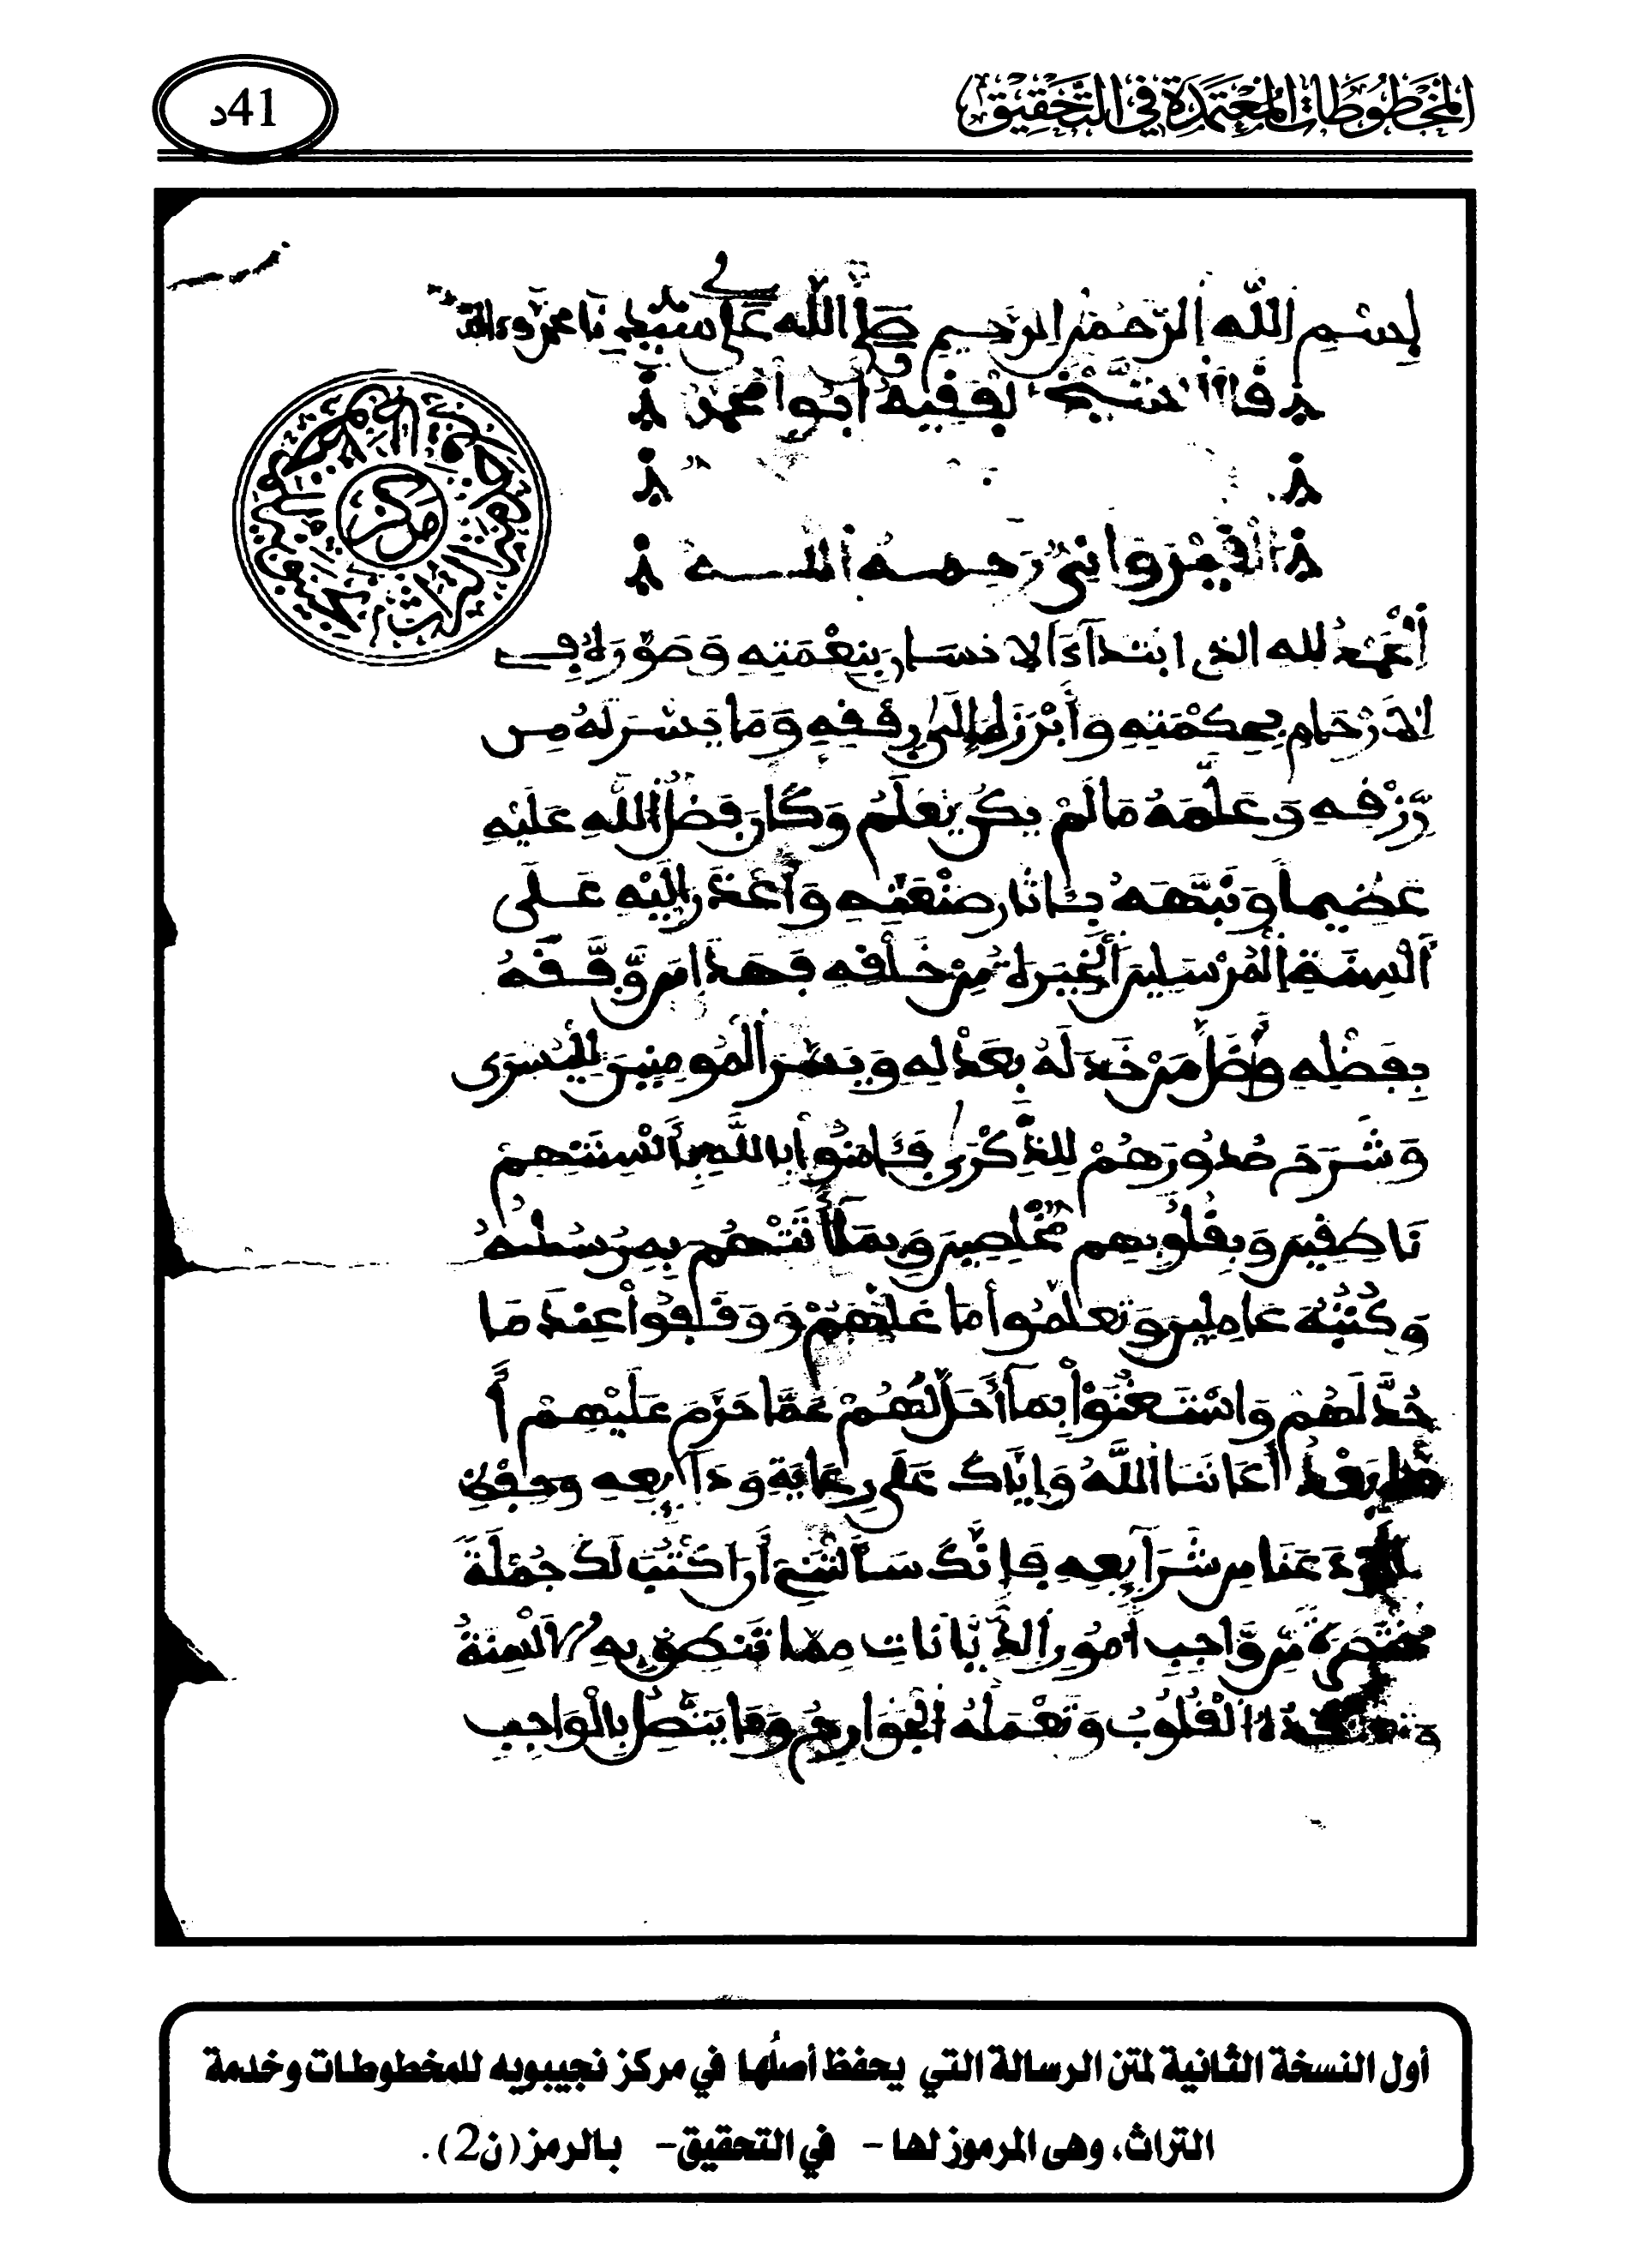 المخطوطات المعتمدة في التحقيق
41د
بسم الله الرحمن الرحيم صلى الله على سيدنا محمد وءاله
قال الشيخ الفقيه أبوا محمد
القيرواني رحمه الله
مركز
الحمد لله الذي ابتدآء الانسان بنعمته وصوره في
الارحام بحكمته وأبرزه إلى رفقه وما يسر له من
رزقه وعلمه ما لم يكن يعلم وكان فضل الله عليه
عضيما ونبهه بئاثار صنعته وأعذر إليه على
ألسنة المرسلين الخيرة من خلقه فهدا من وفقه
بفضله وأضل من خذله بعدله ويسر المومنين لليسرى
وشرح صدورهم للذكرى فئامنوا بالله بألسنتهم
ناطقين وبقلوبهم مخلصين وبمآ أتتهم به رسله
وكتبه عاملين وتعلموا ما علمهم ووقفوا عند ما
حد لهم واستغنوا بمآ أحل لهم عما حرم عليهم أ
ما بعد أعاننا الله وإياك على رعاية ودآيعه وحفظ
ما أودعنا من شرآيعه فإنك سألتني أن اكتب لك جملة
مختصرة من واجب أمور الديانات مما تنطق به الألسنة
وتعتقده القلوب وتعمله الجوارح وما يتصل بالواجب
أول النسخة الثانية لمتن الرسالة التي يحفظ أصلُها في مركز نجيبويه للمخطوطات وخدمة
التراث، وهى المرموز لها - في التحقيق - بالرمز (ن2).